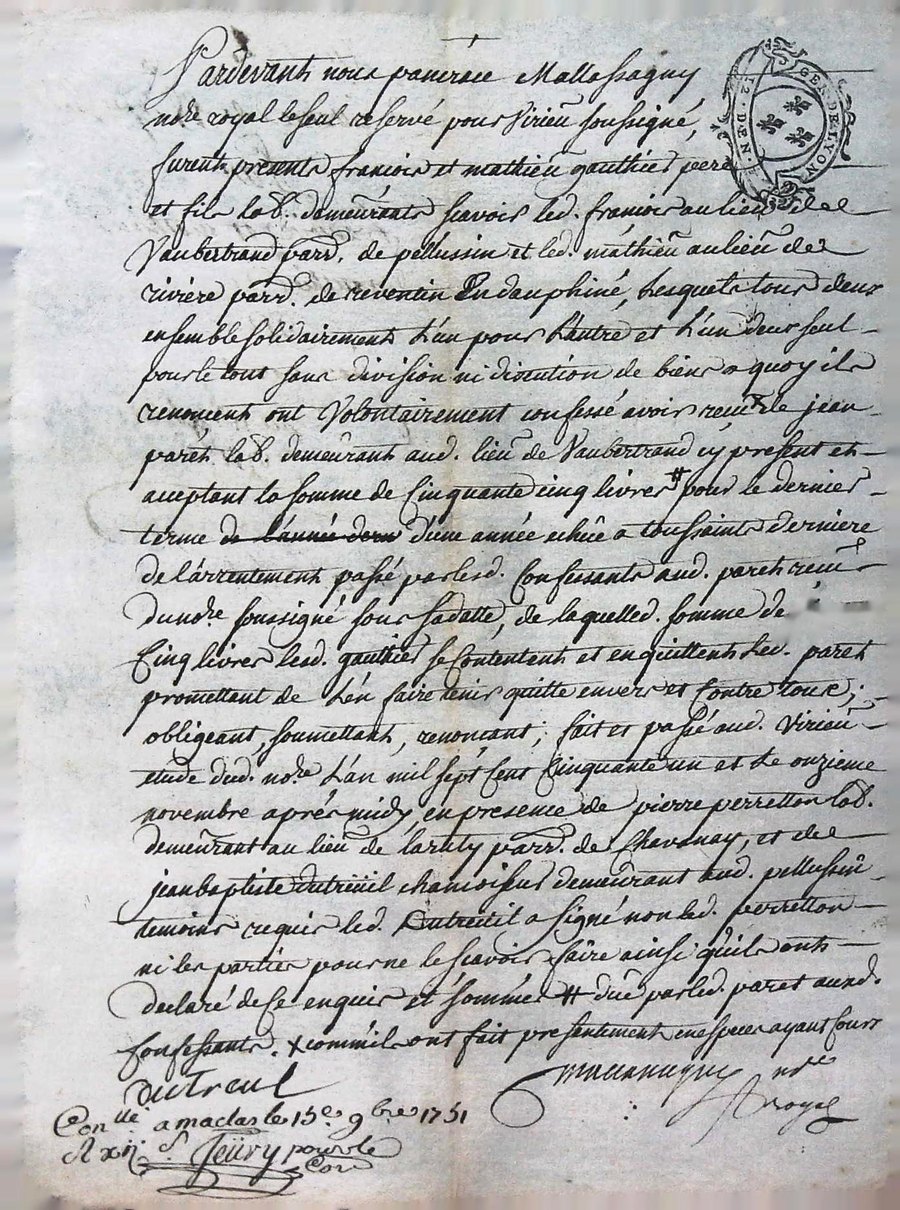 Pardevant nous pancrace Mallassagny
GEN. DE LYON
12. DEN.
no.re royal le seul reservé pour Virieu soussigné,
furent presents francois et mathieu gauthier pere
et fils lab. demeurants scavoir led. francois au lieu de
Vaubertrand parr. de pellussin et led. mathieu au lieu de
riviere parr. de reventin En dauphiné, Lesquels tous deux
ensemble solidairement L'un pour L'autre et L'un deux seul
pour le tout sans division ni discution de biens a quoy ils
renoncent ont Volontairement confessé avoir receu x de jean
paret lab. demeurant aud. lieu de Vaubertrand cy present et
acceptant la somme de Cinquante cinq livres # pour le dernier
terme de l'année dern d'une année echüe a toussaints derniere
de l'arrentement passé par lesd. Confessants aud. paret receu
du no.re soussigné sous sa datte, de laquelled. somme de
Cinq livres lesd. gauthier se Contentent et en quittent Led. paret
promettant de L'en faire tenir quitte envers et Contre tous;
obligeant, soumettant, renoncant; fait et passé aud. Virieu
etude dud. no.re L'an mil sept Cent Cinquante un et Le onzieme
novembre aprés midy, en presence de pierre perretton lab.
demeurant au lieu de parr. de Chavanay, et de
jean baptiste dutreüil chamoiseur demeurant aud. pellussin
temoins requis led. Dutreüil a signé non led. perretton
ni les parties pour ne le scavoir faire ainsi qu'ils ont
declaré de Ce enquis et sommés # düe par led. paret auxd.
Confessants. x comm'ils ont fait presentement en especes ayant Cours
dutreul
no.re
royal
Con.lle a maclas le 15e 9bre 1751
R xij s. Jeüry pour le
Con